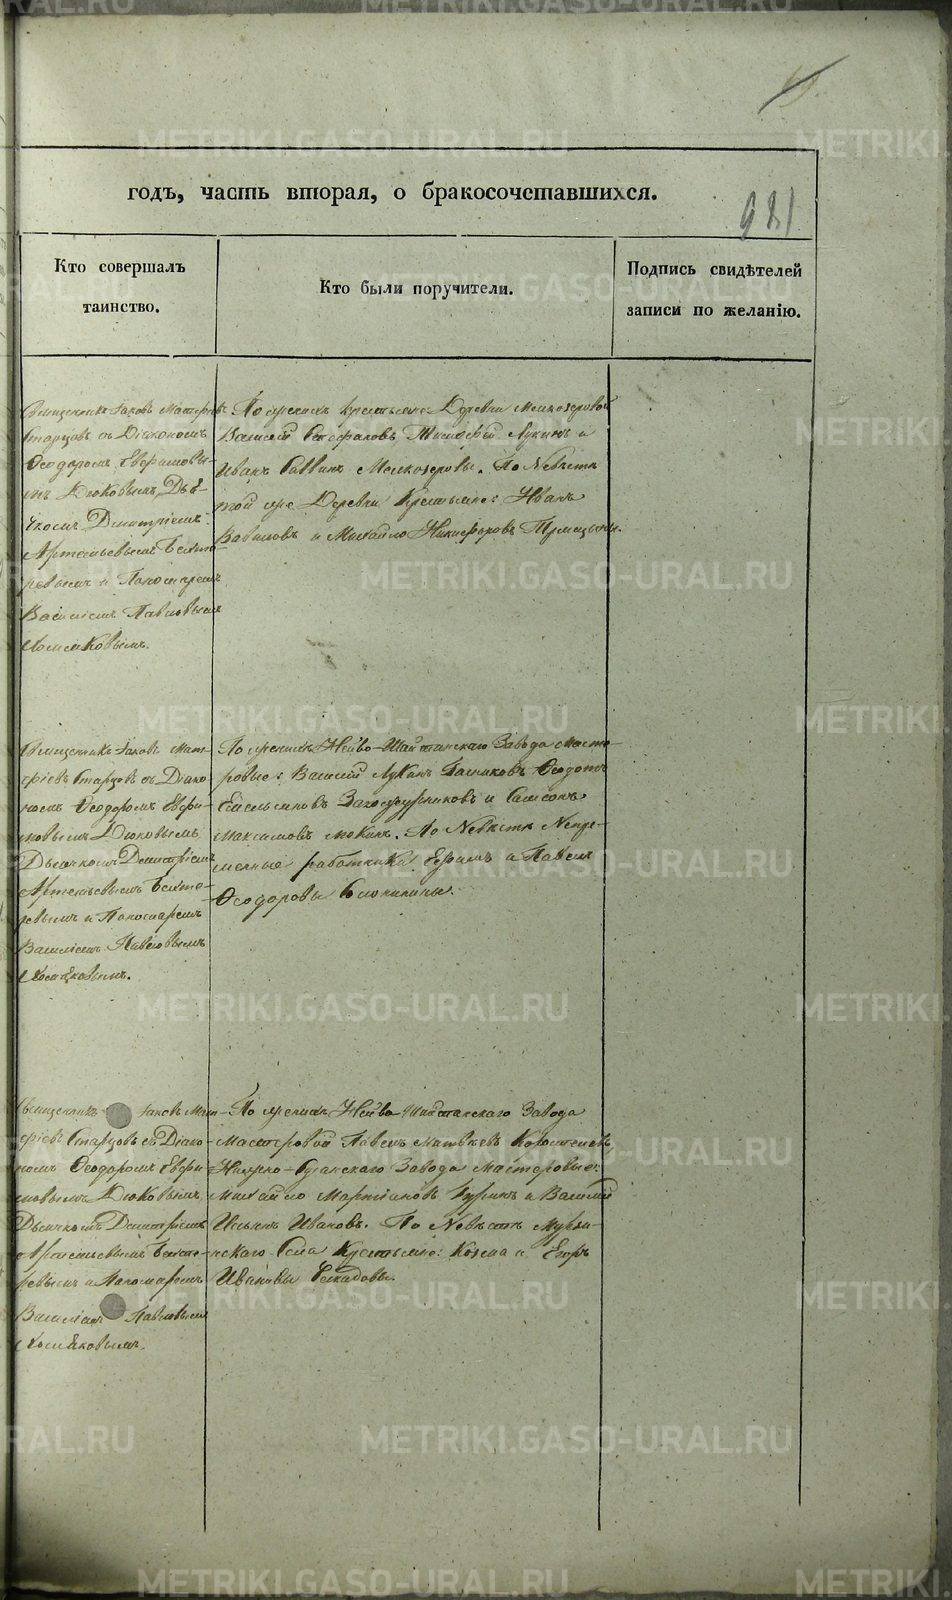 годъ, часть вторая, о бракосочетавшихся.
921
Кто совершалъ
таинство.
Кто были поручители.
Подпись свидѣтелей
записи по желанію.
Священникъ Іаковъ Матфіевъ
Старцовъ съ Діакономъ
Ѳеодоромъ Евфимовы-
мъ Дюковымъ, Дья-
чкомъ Димитріемъ
Артемьевымъ
и Пономаремъ
Василіемъ Павловымъ
Хомяковымъ.
По женихѣ крестьяне Деревни Мелкозеровой
Василій Тимофей Лукинъ и
Иванъ Саввинъ Мелкозеровы. По Невѣстѣ
той же Деревни Крестьяне: Иванъ
Вавиловъ и Михайло Никифоровъ
Священникъ Іаковъ Мат-
фіевъ Старцовъ съ Діако-
номъ Ѳеодоромъ Евфи-
мовымъ Дюковымъ
Дьячкомъ Димитріемъ
Артемьевымъ
и Пономаремъ
Василіемъ Павловымъ
Хомяковымъ.
По женихѣ Нейво-Шайтанскаго Завода Масте-
ровые: Василій Лукинъ Ѳеодотъ
Емельяновъ и Самсонъ
Максимовъ По Невѣстѣ Непре-
менные работники Ефимъ и Павелъ
Ѳеодоровы
Священникъ Іаковъ Мат-
фіевъ Старцовъ съ Діако-
номъ Ѳеодоромъ Евфи-
мовымъ Дюковымъ,
Дьячкомъ Димитріемъ
Артемьевымъ
и Пономаремъ
Василіемъ Павловымъ
Хомяковымъ.
По женихѣ Нейво-Шайтанскаго Завода
Мастеровой Павелъ Матвѣевъ
Завода Мастеровые:
Михайло Мартиановъ и Василій
Ильинъ Ивановъ. По Невѣстѣ Мурзи-
нскаго Села Крестьяне: Козма и Егоръ
Ивановы
METRIKI.GASO-URAL.RU